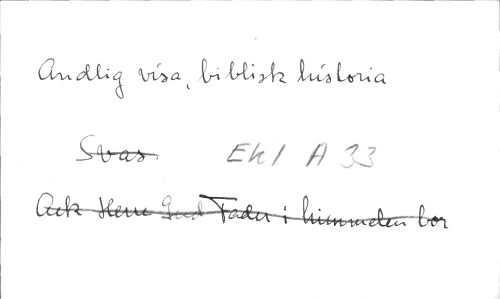 Andlig visa, biblisk historia
Svar. Ek1 A 33
Ack Herre Gud Fader i himmelen bor